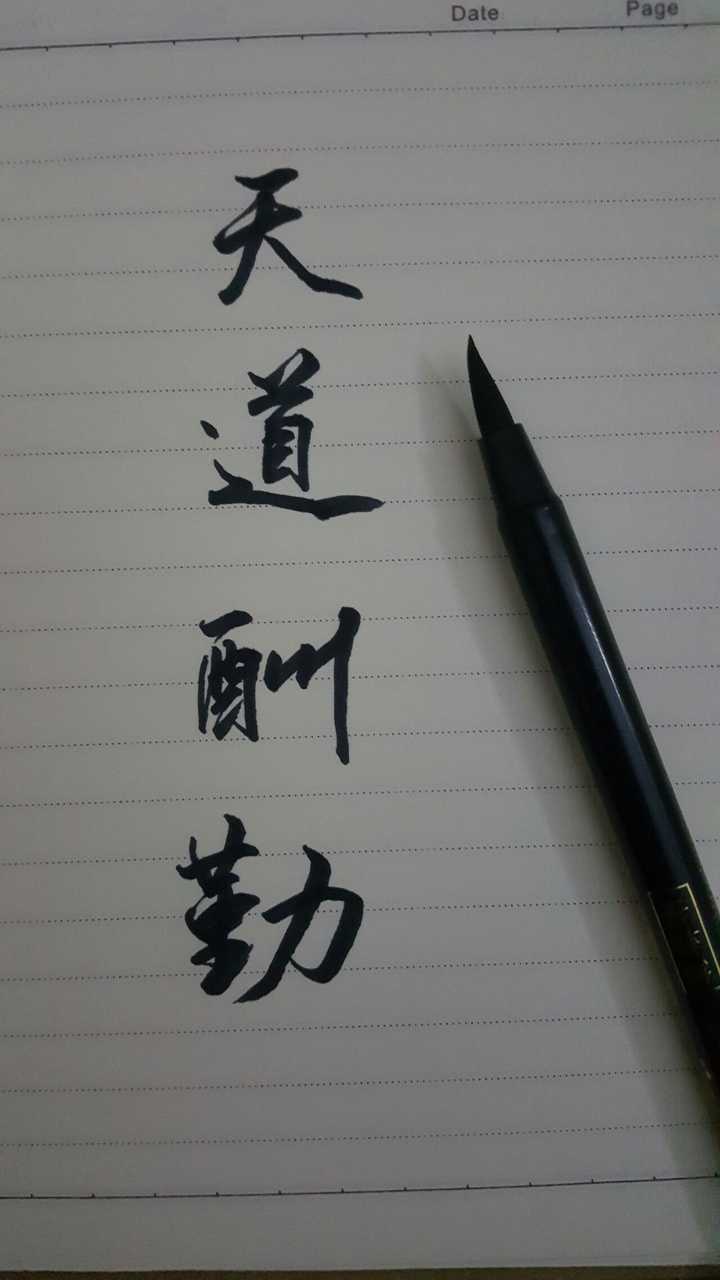 Date Page
天道酬勤